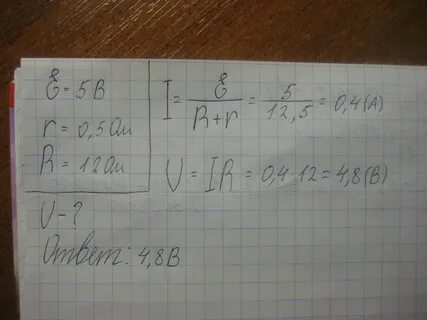 ℰ = 5В
r = 0,5Ом
R = 12Ом
U - ?
I = ℰ / (R+r) = 5 / 12,5 = 0,4(А)
U = IR = 0,4·12 = 4,8(В)
Ответ: 4,8В